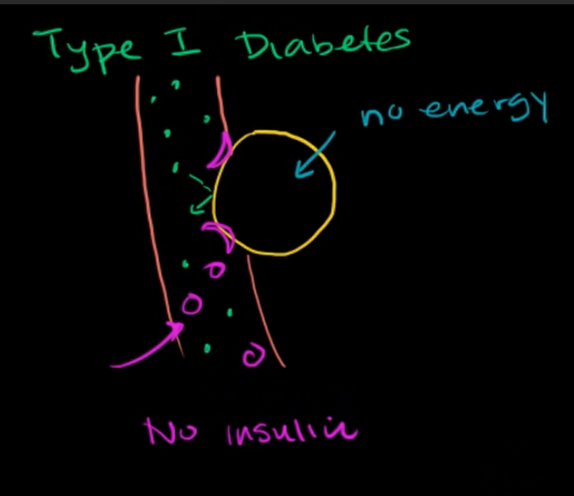 Type I Diabetes
no energy
No insulin